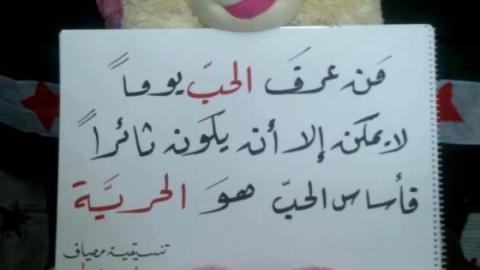 مَن عرفَ الحبّ يوماً
لا يمكن إلا أن يكون ثائراً
فأساس الحبّ هوَ الحريّة
تنسيقية مصياف